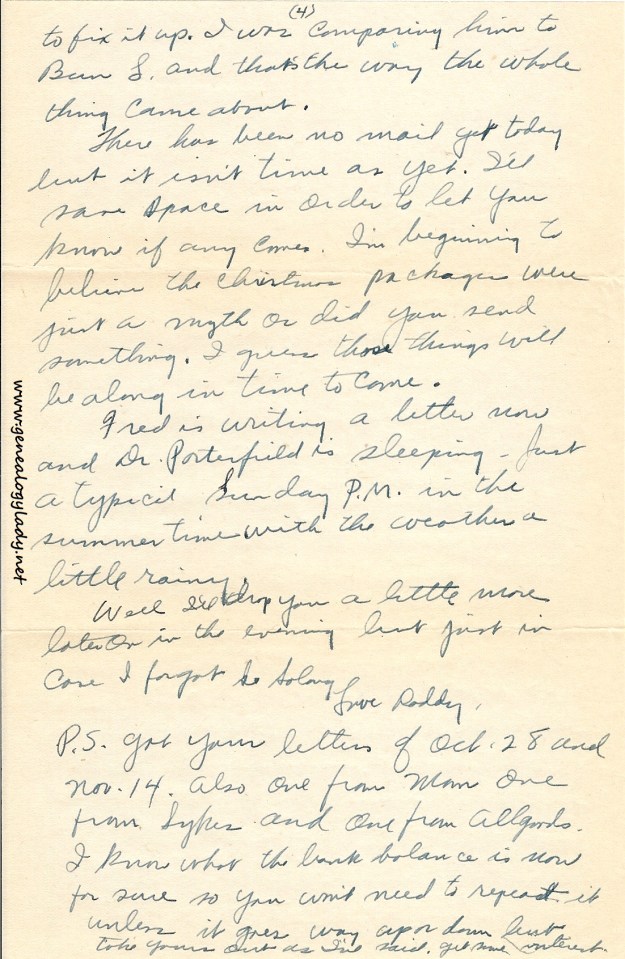 (4)
to fix it up. I was comparing him to
Bern S. and that's the way the whole
thing came about.
There has been no mail yet today
but it isn't time as yet. I'll
save space in order to let you
know if any comes. I'm beginning to
believe the Christmas packages were
just a myth or did you send
something. I guess those things will
be along in time to come.
Fred is writing a letter now
and Dr. Porterfield is sleeping - Just
a typical Sunday P.M. in the
summer time with the weather a
little rainy.
Well I'll drop you a little more
later on in the evening but just in
case I forget to solong
Love Daddy.
P.S. Got your letters of Oct. 28 and
Nov. 14. Also one from Mom one
from Sykes and one from Allgoods.
I know what the bank balance is now
for sure so you won't need to repeat it
unless it goes way up or down but
take yours out as I've said. get some interest.
www.genealogylady.net